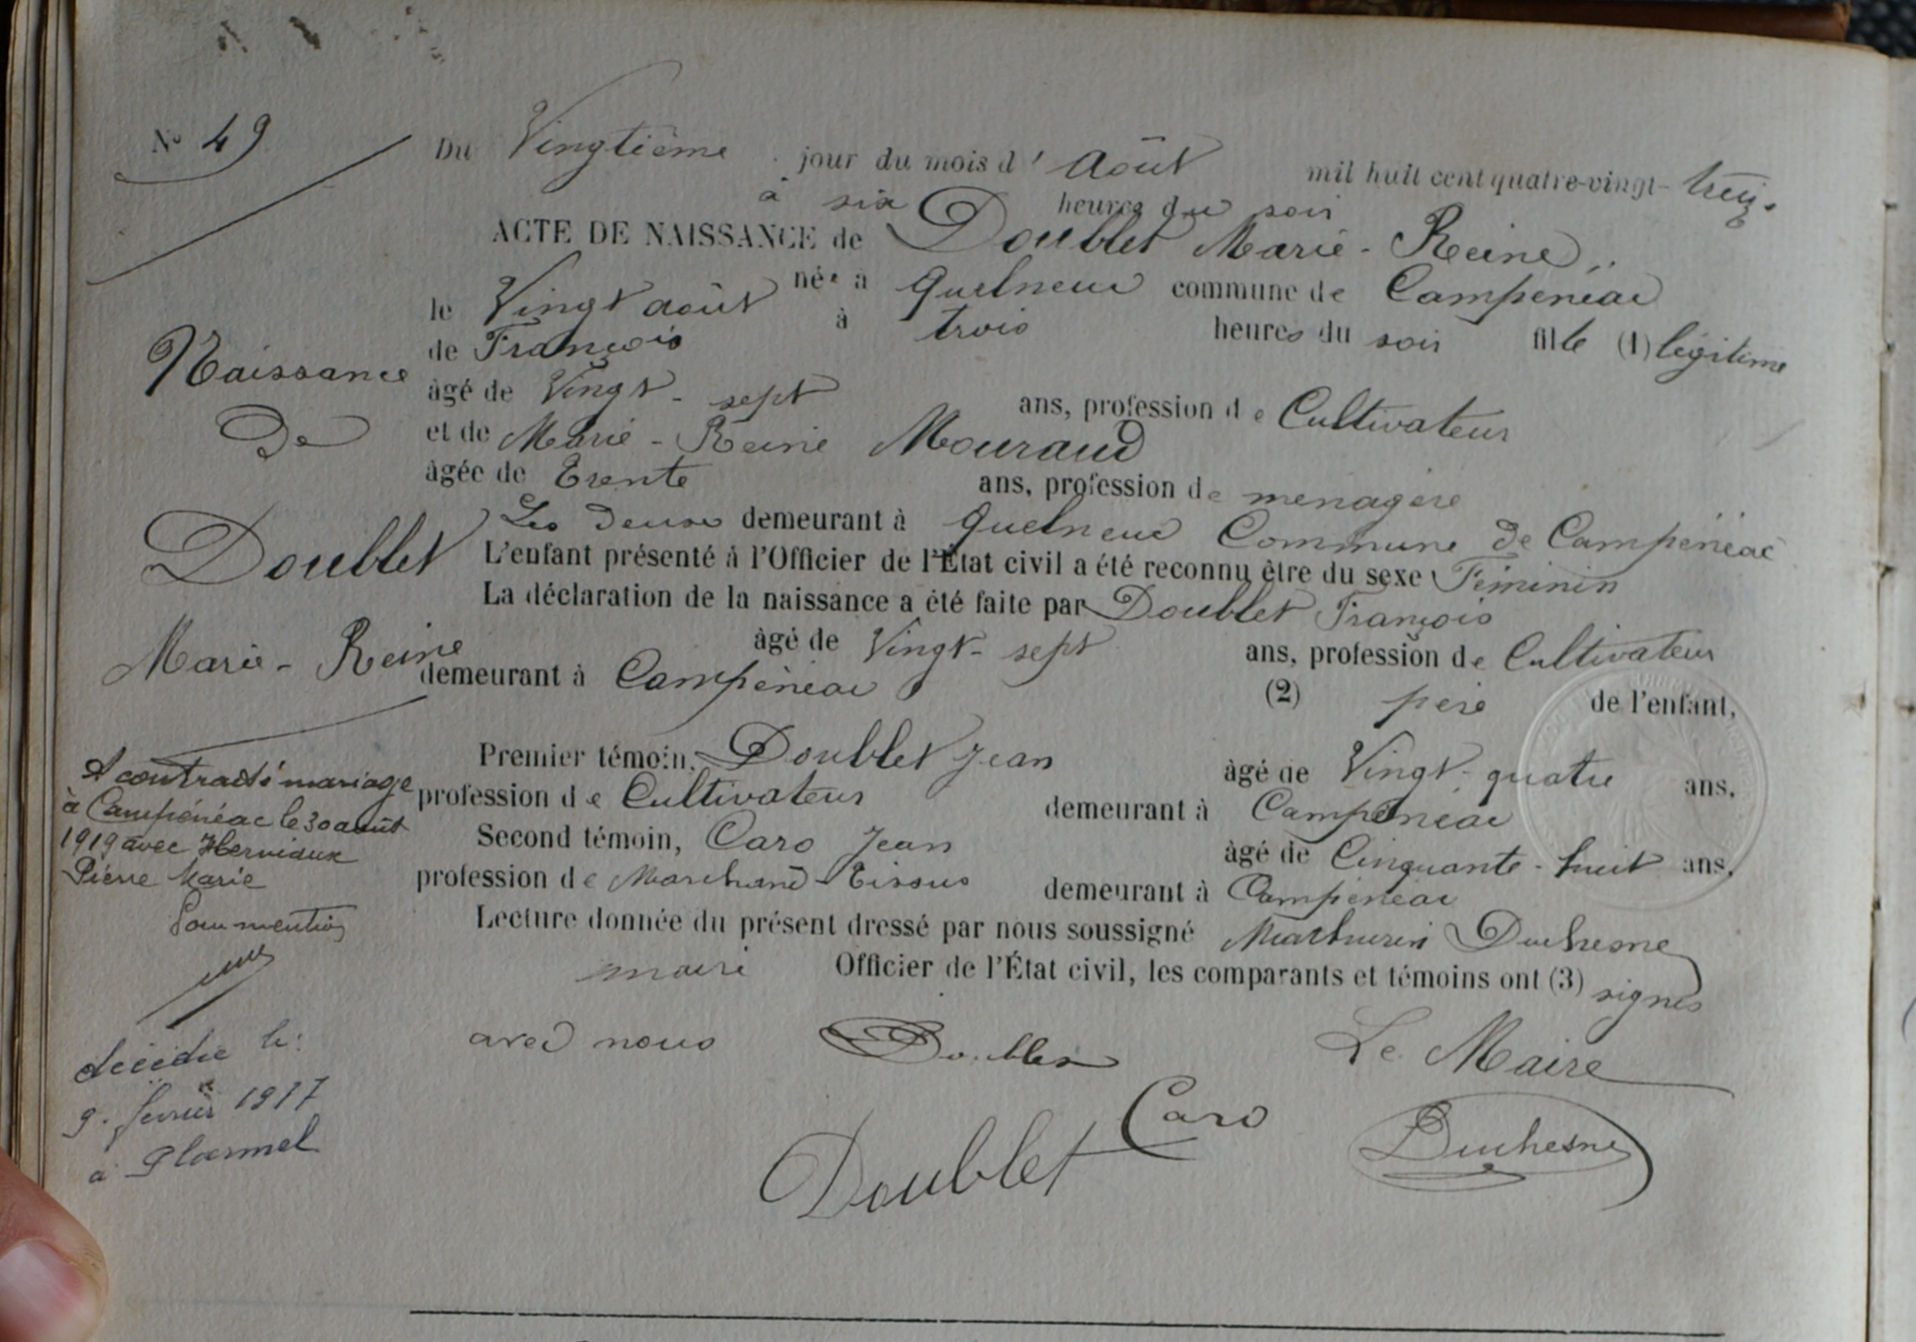 N° 49
Du Vingtième jour du mois d' Août mil huit cent quatre-vingt-treize
à six heures du soir
ACTE DE NAISSANCE de Doublet Marie-Reine
née à Quelneuc commune de Campénéac
le Vingt août à trois heures du soir fille (1) légitime
de François
âgé de Vingt-sept ans, profession de Cultivateur
et de Marie-Reine Mouraud
âgée de Trente ans, profession de ménagère
Les Deux demeurant à Quelneuc Commune de Campénéac
L'enfant présenté à l'Officier de l'État civil a été reconnu être du sexe Féminin
La déclaration de la naissance a été faite par Doublet François
âgé de Vingt-sept ans, profession de Cultivateur
demeurant à Campénéac (2) père de l'enfant,
Premier témoin, Doublet Jean âgé de Vingt-quatre ans,
profession de Cultivateur demeurant à Campénéac
Second témoin, Caro Jean âgé de Cinquante-huit ans,
profession de Marchand-Tissus demeurant à Campénéac
Lecture donnée du présent dressé par nous soussigné Mathurin Duchesne
maire Officier de l'État civil, les comparants et témoins ont (3) signés
avec nous
Doublet
Le Maire
Caro
Doublet
Duchesne
Naissance
De
Doublet
Marie-Reine
A contracté mariage
à Campénéac le 30 août
1919 avec Herviaux
Pierre Marie
Pour mention
décédée le:
9. février 1977
à Ploërmel